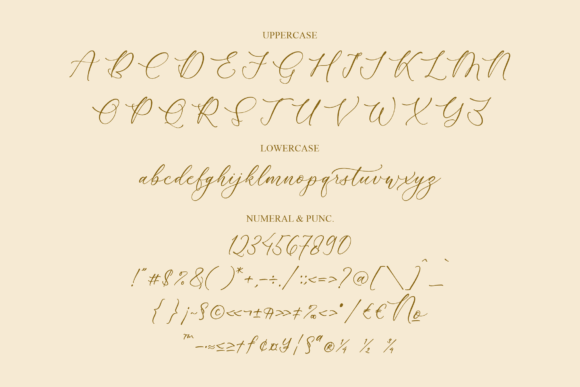 UPPERCASE
A B C D E F G H I J K L M N
O P Q R S T U V W X Y Z
LOWERCASE
abcdefghijklmnopqrstuvwxyz
NUMERAL & PUNC.
1234567890
!"#$%&( )*+,-÷./:;<=>?@[\]^_
{ }¡~§©«¬±®»≠‰<>°/€€№
™-·≈≤≥+ƒ¢¤¥¦§ª®¼ ½ ¾